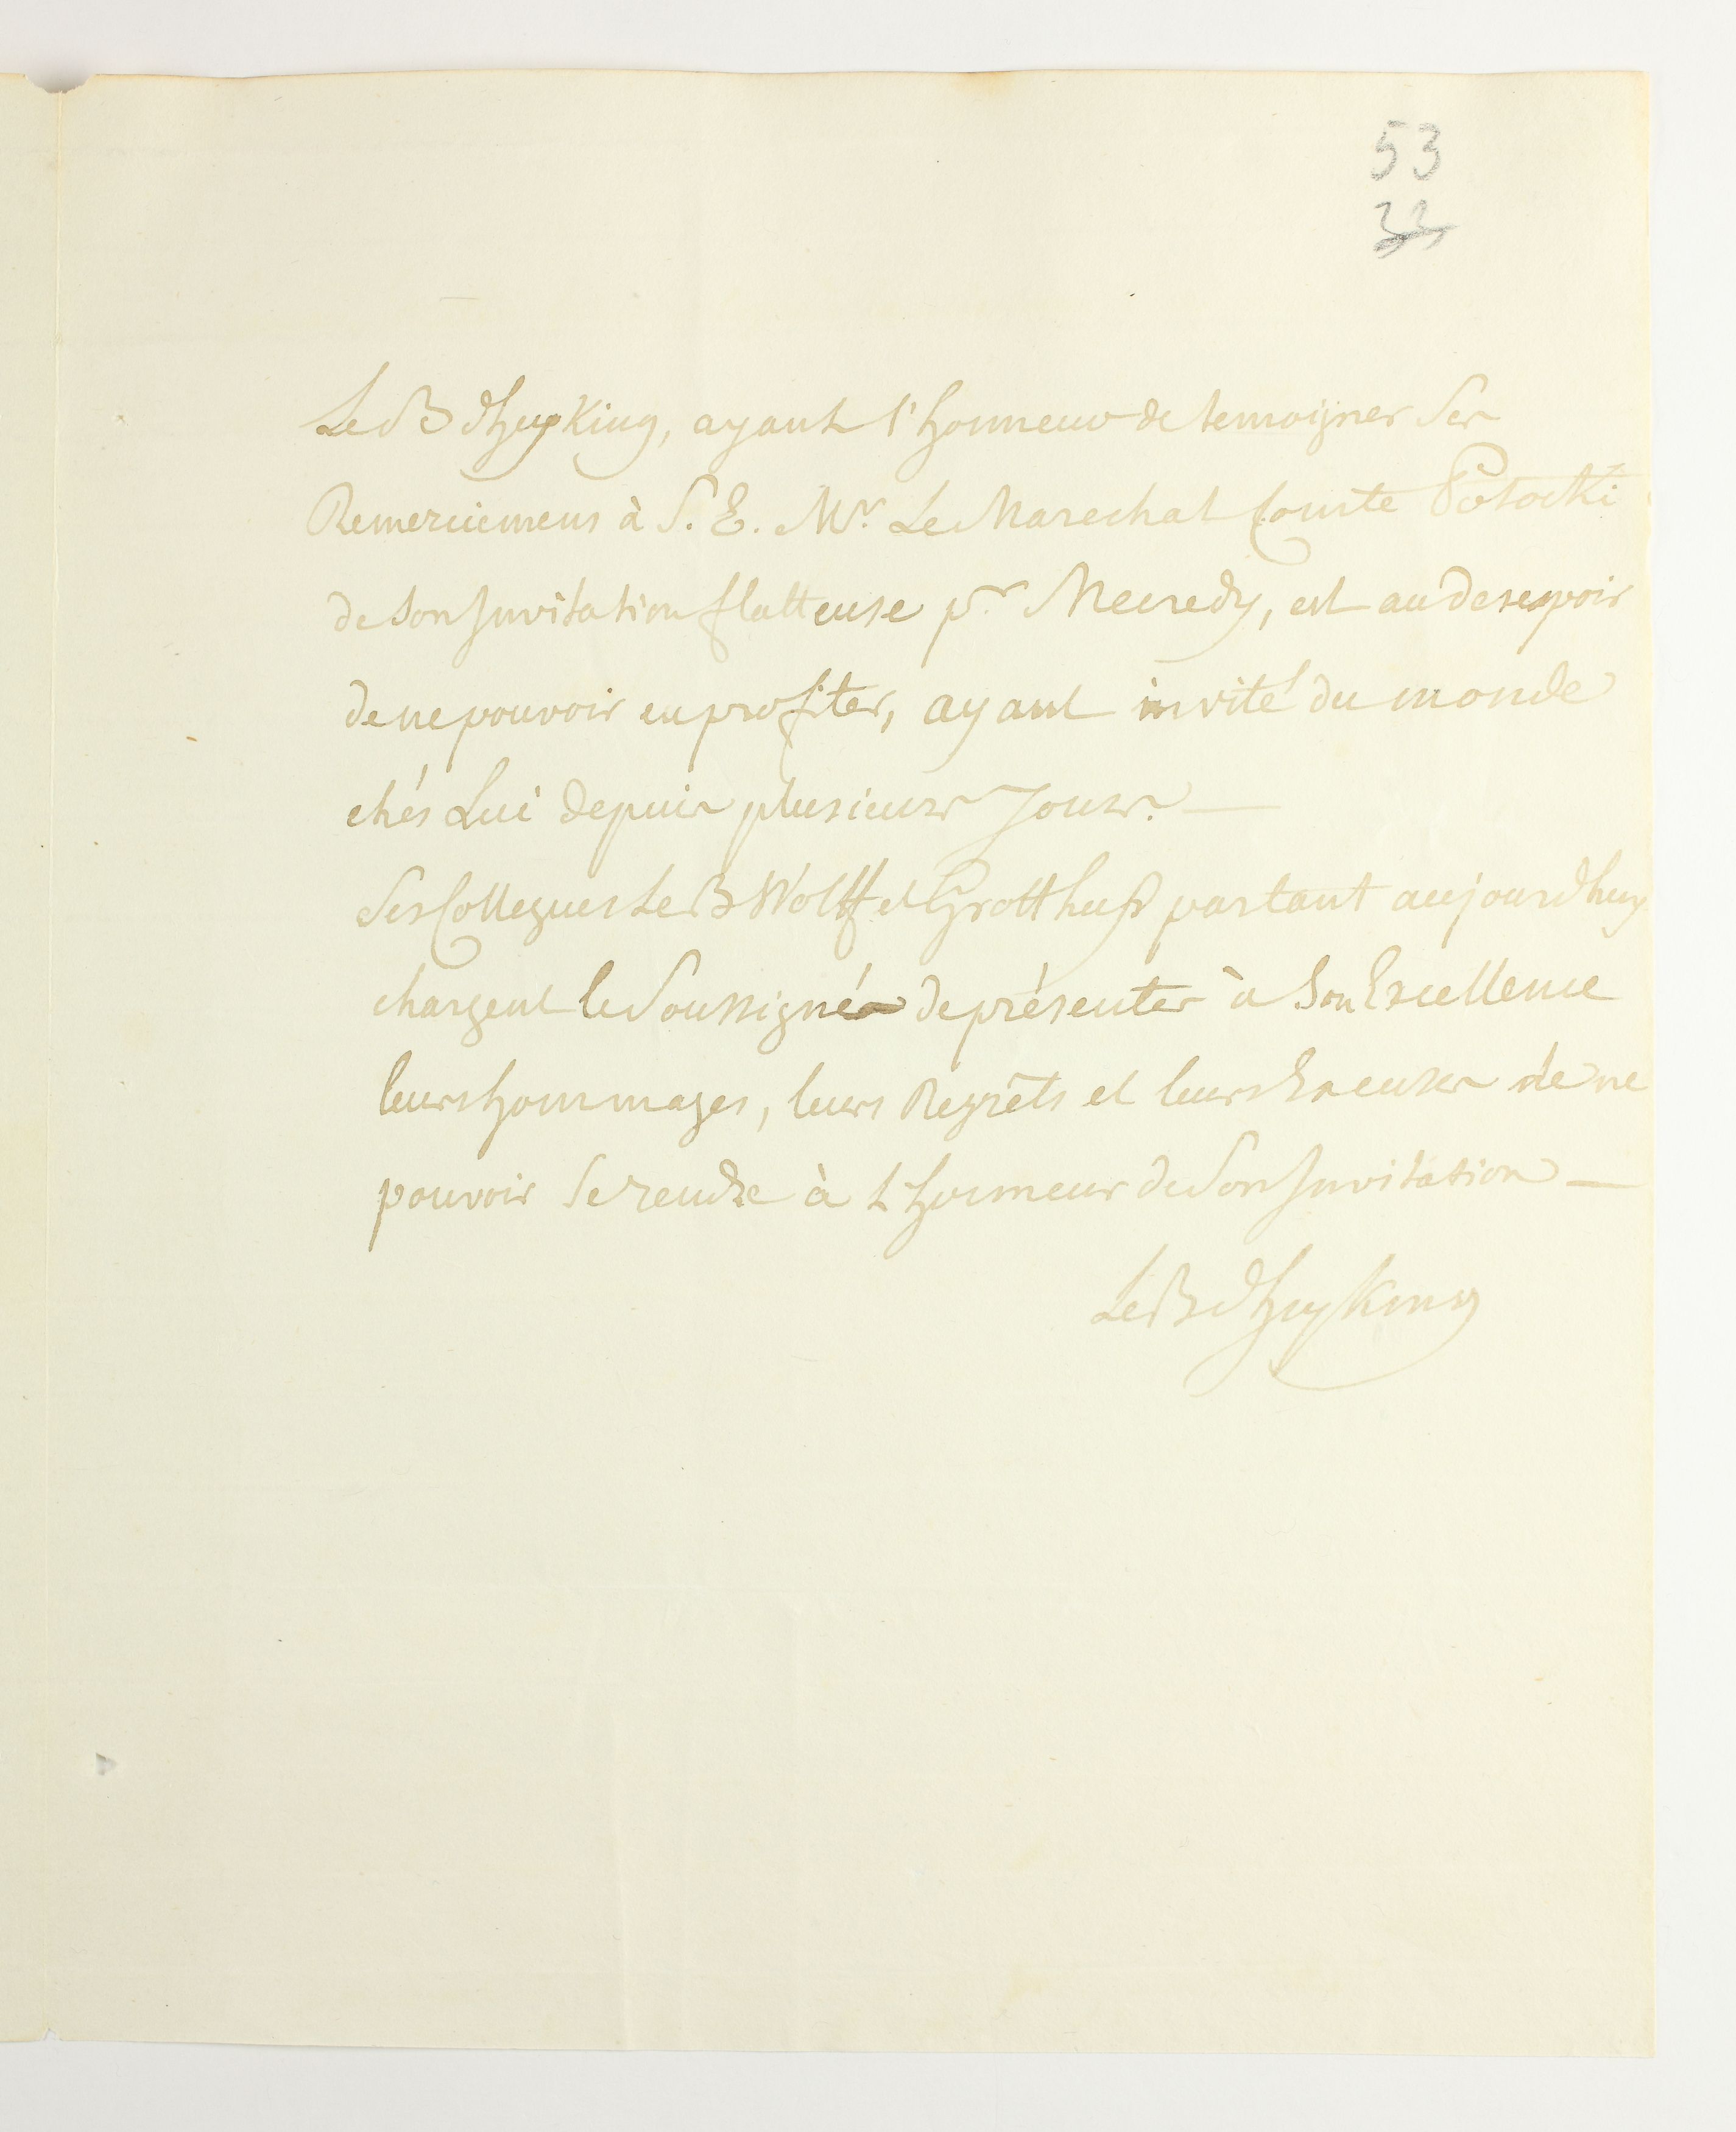 53
33
Le B d'heyKing, ayant l'honneur de temoigner Ses
Remerciemens à S. E. Mr. Le Marechal Comte Potocki
de Son Invitation flatteuse pr. Mecredy, est au desespoir
de ne pouvoir en profiter, ayant invité du monde
chés Lui depuis plusieurs Jours. —
Ses Collegues Le B Wolff et Grotthuß partant aujourdhuy
chargent le Soussigné de présenter à Son Excellence
leurs hommages, leurs Regrêts et leurs Excuses de ne
pouvoir Se rendre à l'honneur de Son Invitation —
Le B d'heyKing